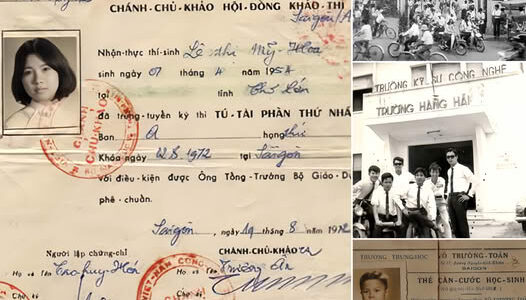 CHÁNH-CHỦ-KHẢO HỘI-ĐỒNG KHẢO-THÍ
Saigòn
Nhận-thực thí-sinh Lê thị Mỹ-Hoa
sinh ngày 07 tháng 4 năm 1954
tại tỉnh
đã trúng-tuyển kỳ thi TÚ-TÀI PHẦN THỨ NHẤ
Ban A hạng thứ
Khóa ngày 1972 tại Saigòn
với điều-kiện được Ông Tổng-Trưởng Bộ Giáo-Dụ
phê-chuẩn.
Saigòn, ngày 19 tháng 8 năm 1972
Người lập chứng-chỉ
CHÁNH-CHỦ-KHẢO
Họ và Tên
Họ và Tên
CHỦ-KHẢO
VIỆT-NAM CỘNG
TRƯỜNG KỸ SƯ CÔNG NGHỆ
TRƯỜNG HÀNG HẢI
TRƯỜNG TRUNG-HỌC VÕ TRƯỜNG-TOẢN
SAIGON
THẺ CĂN-CƯỚC HỌC-SINH